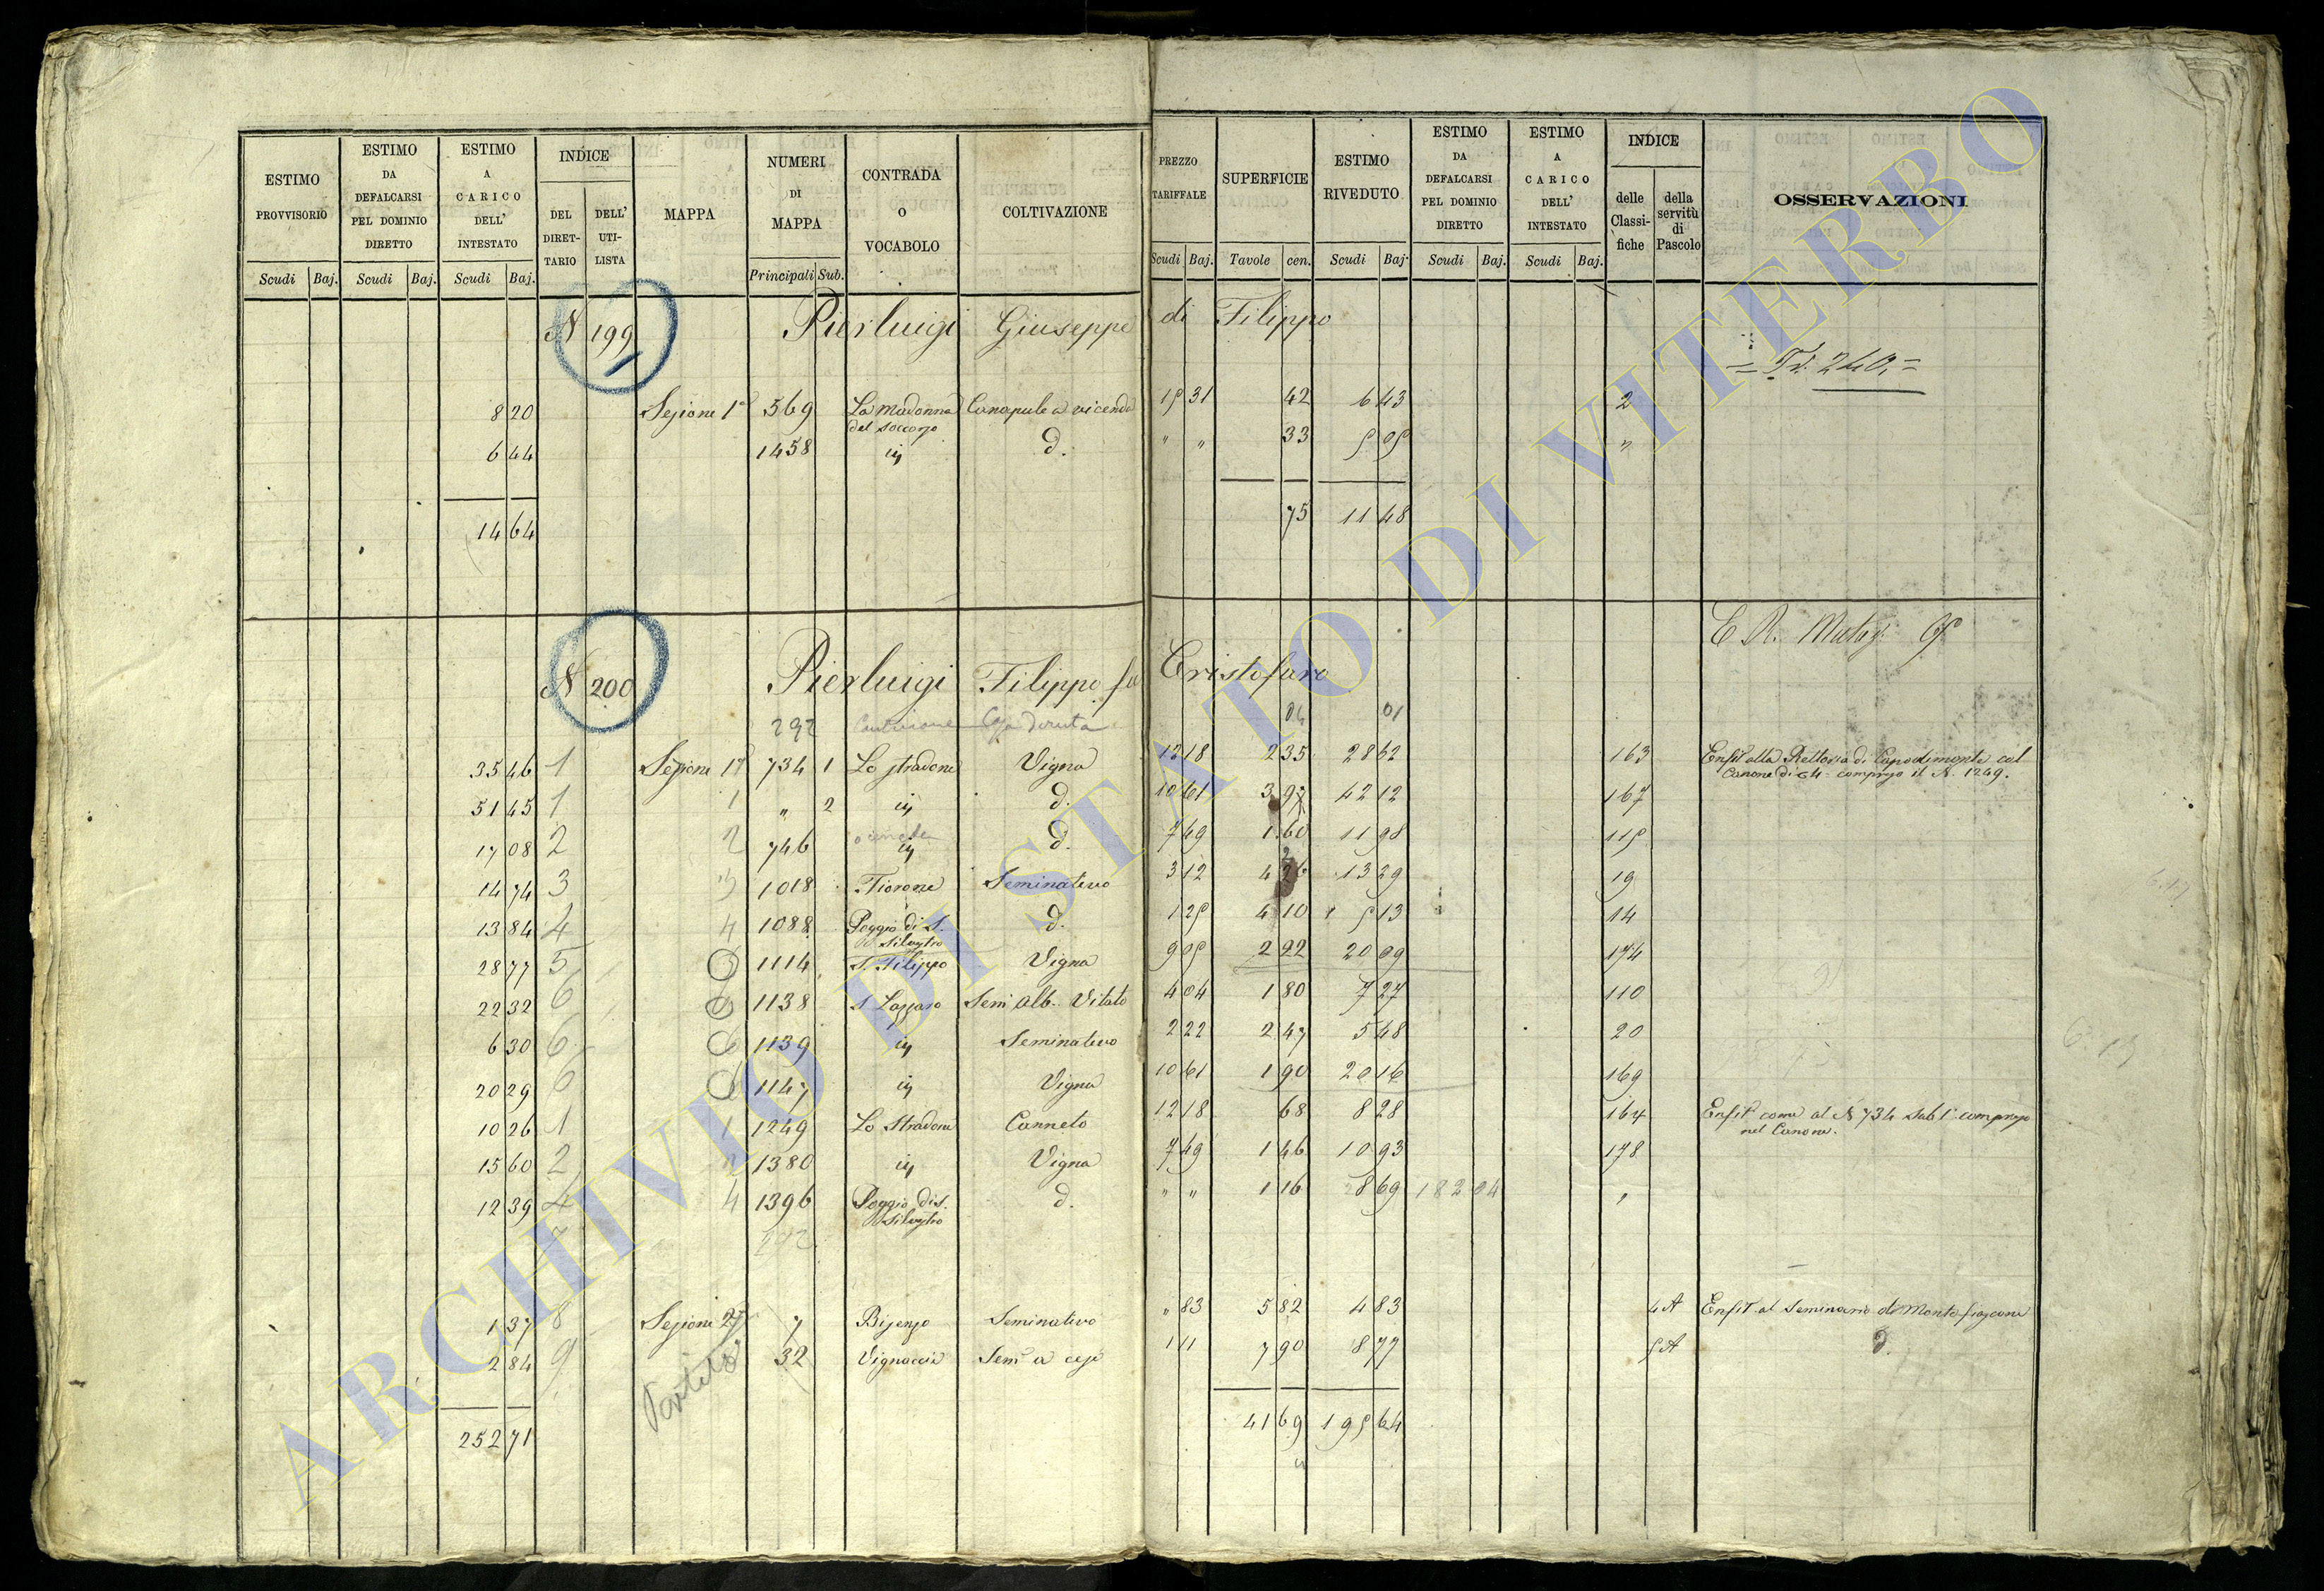 ESTIMO PROVVISORIO Scudi Baj.
ESTIMO DA DEFALCARSI PEL DOMINIO DIRETTO Scudi Baj.
ESTIMO A CARICO DELL' INTESTATO Scudi Baj.
INDICE DEL DIRETTARIO DELL' UTILISTA
MAPPA
NUMERI DI MAPPA Principali Sub.
CONTRADA O VOCABOLO
COLTIVAZIONE
PREZZO TARIFFALE Scudi Baj.
SUPERFICIE Tavole cen.
ESTIMO RIVEDUTO Scudi Baj.
ESTIMO DA DEFALCARSI PEL DOMINIO DIRETTO Scudi Baj.
ESTIMO A CARICO DELL' INTESTATO Scudi Baj.
INDICE delle Classifiche della servitù di Pascolo
OSSERVAZIONI
N 199 Pierluigi Giuseppe di Filippo
240
8 20 Sezione 1ª 569 La Madonna del Soccorso Canapule a vicenda 15 31 42 6 43 2
6 44 1458 iij d. " " 33 5 05 "
14 64 75 11 48
N 200 Pierluigi Filippo fu Cristofaro
292 04 01
35 46 1 Sezione 1ª 734 1 Lo Stradone Vigna 12 18 2 35 28 62 163 Enfit. alla Rettoria di Capodimonte col Canone di compreso il N. 1249.
51 45 1 1 " 2 iij d. 10 61 3 97 42 12 167
17 08 2 2 746 iij d. 7 49 1 60 11 98 115
14 74 3 3 1018 Fiorone Seminativo 3 12 4 26 13 29 19
13 84 4 4 1088 Poggio di S. Silvestro d. 1 25 4 10 5 13 14
28 77 5 1114 S. Filippo Vigna 9 05 2 22 20 09 174
22 32 6 1138 S. Lazzaro Sem. alb. Vitato 4 04 1 80 7 27 110
6 30 6 1139 iij Seminativo 2 22 2 47 5 48 20
20 29 6 1147 iij Vigna 10 61 1 90 20 16 169
10 26 1 1 1249 Lo Stradone Canneto 12 18 68 8 28 164 Enfit. come al N 734 Sub 1 compreso nel Canone.
15 60 2 1380 iij Vigna 7 49 1 46 10 93 178
12 39 4 4 1396 Poggio di S. Silvestro d. " " 1 16 8 69 182 04 "
1 37 8 Sezione 2ª 7 Bisenzo Seminativo " 83 5 82 4 83 4 A Enfit. al Seminario di Montefiascone
2 84 9 32 Vignaccia Sem. a cese 1 11 7 90 8 77 5 A d.
252 71 41 69 195 64
ARCHIVIO DI STATO DI VITERBO